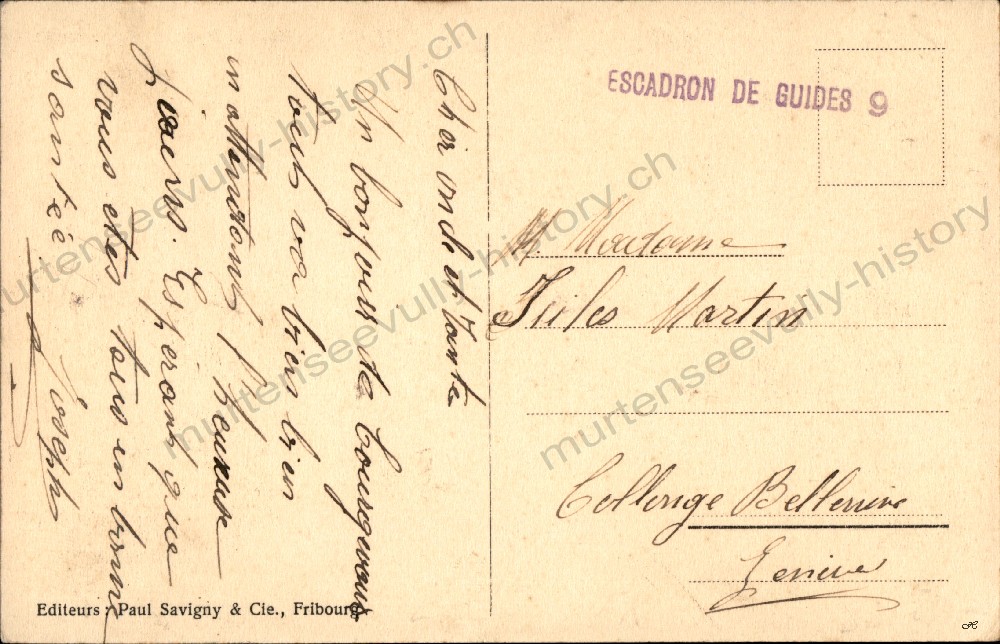 Cher oncle et tante
Un bonjour de Courgevaux
tout va bien bien
en attendant l'heure
Esperant que
vous etes tous en bonne
santée
Joseph
ESCADRON DE GUIDES 9
M. Madame
Jules Martin
Collonge Bellerive
Genève
Editeurs: Paul Savigny & Cie., Fribourg.
murtenseevully-history.ch
murtenseevully-history.ch
murtenseevully-history